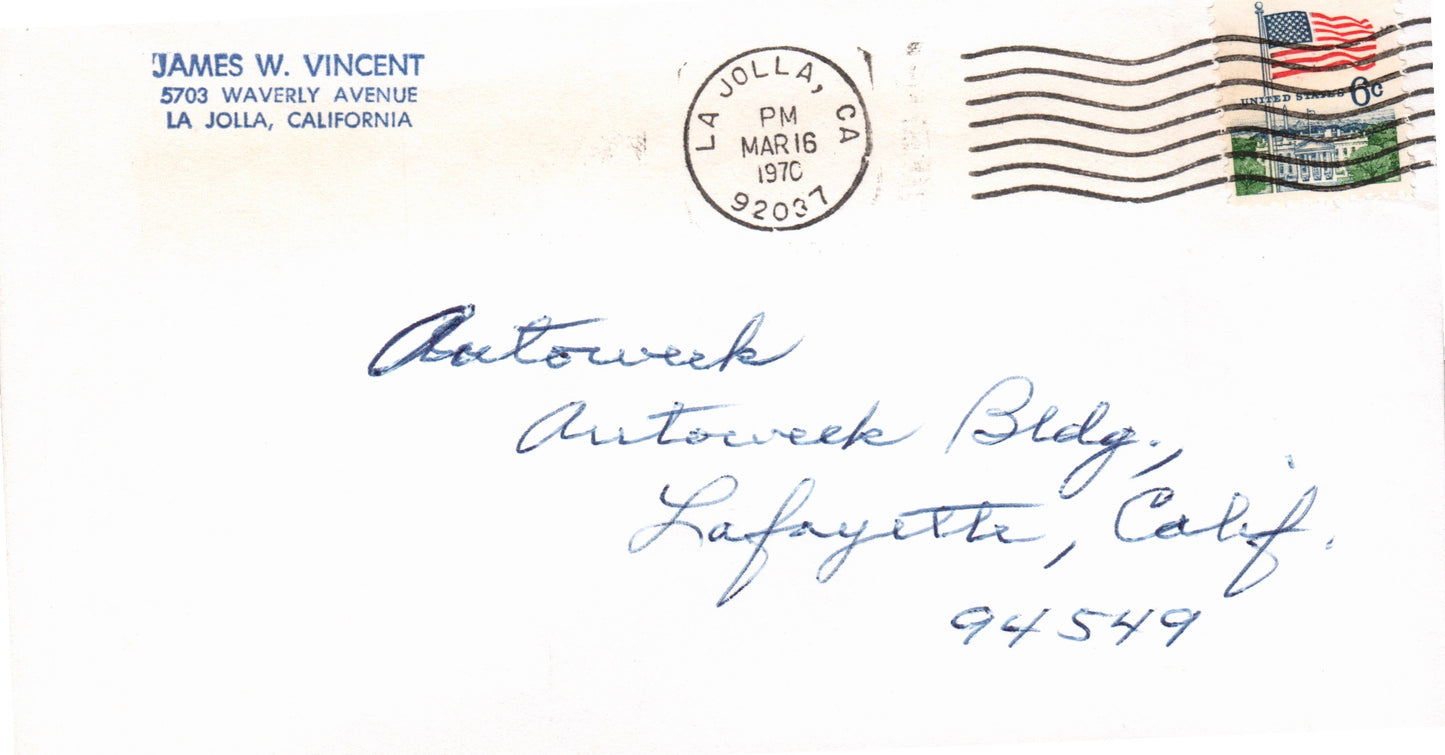 JAMES W. VINCENT
5703 WAVERLY AVENUE
LA JOLLA, CALIFORNIA
LA JOLLA, CA
PM
MAR 16
1970
92037
UNITED STATES 6c
Autoweek
Autoweek Bldg.,
Lafayette, Calif.
94549